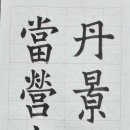 丹景
當營